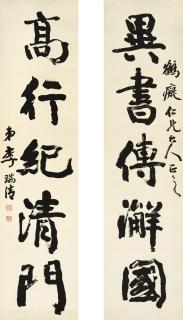 異書傳瀚國
鶴癡仁兄大人正之
高行紀清門
弟李瑞清